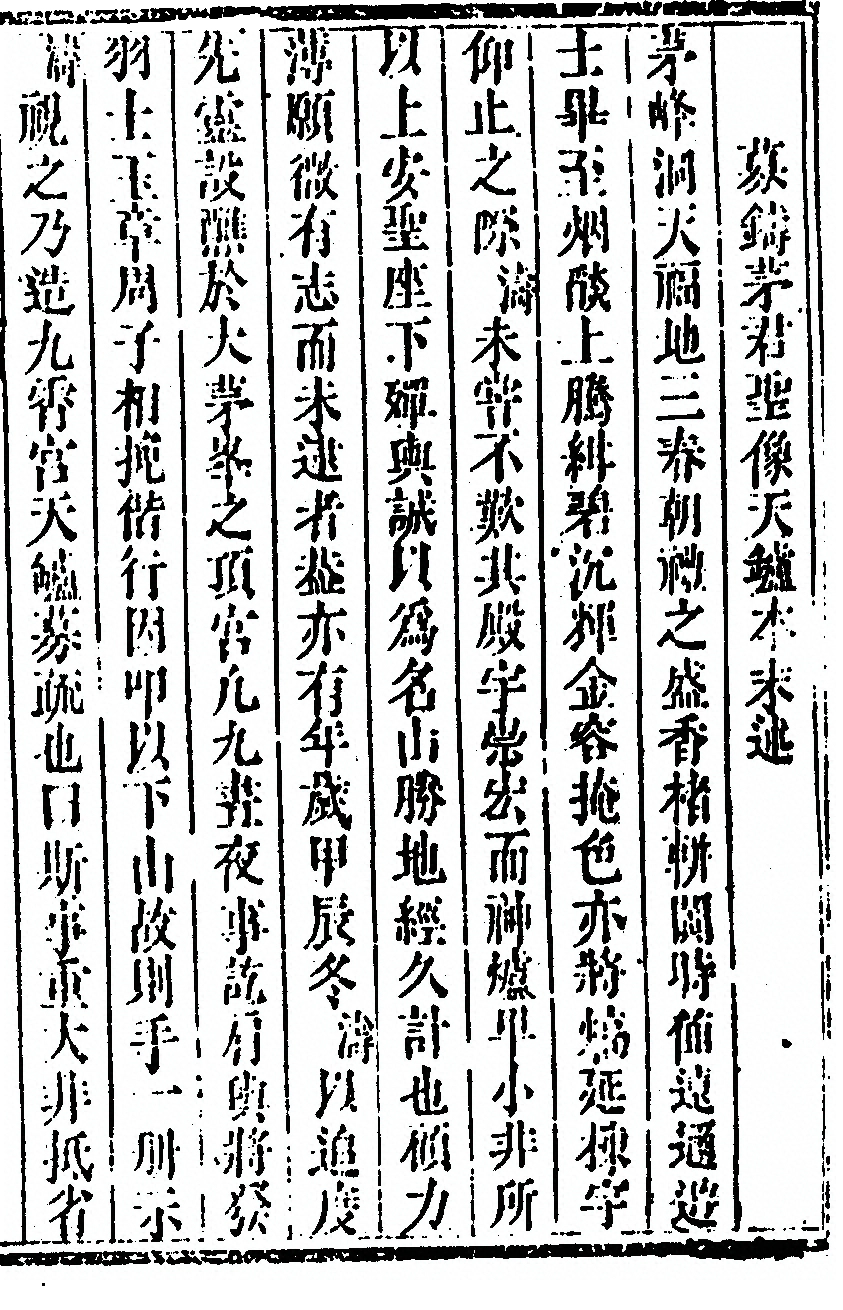 募鑄茅君聖像天鑪本末述
茅峰洞天福地三春朝禮之盛香楮騈闐時値遠通遊
士畢至烟燄上騰緋碧沉輝金容掩色亦將熇延榱宇
仰止之際濤未甞不歎其殿宇崇宏而神爐卑小非所
以上安聖座下殫輿誠以爲名山勝地經久計也傾力
薄願微有志而未逮者葢亦有年歲甲辰冬濤以追度
先靈設醮於大茅峯之頂宮凢九晝夜事訖肩輿將發
羽士玉章周子相挽偕行因叩以下山故則手一册示
濤視之乃造九霄宮天鑪募疏也曰斯事重大非抵省